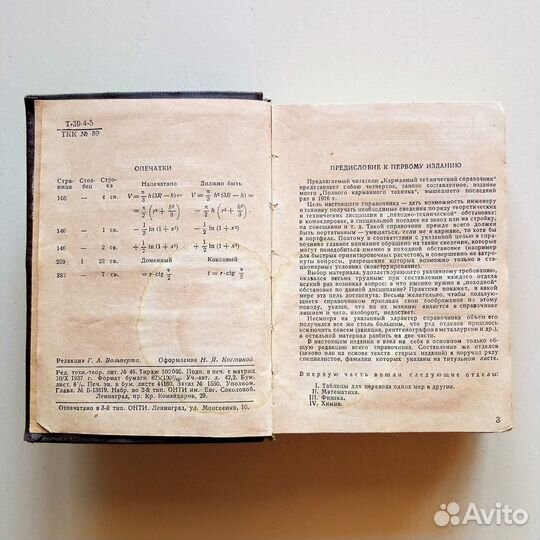 Т-39-4-5
ТКК № 89
ОПЕЧАТКИ
Страница Столбец Строка Напечатано Должно быть
105 — 4 сн. V = π/3 h(3R — h) = V = π/3 h² (3R — h) =
= π/2 h (r² + h²/3) = π/2 h (r² + h²/3)
146 1 св. — 1/2 ln (1 + x²) 1/2 ln (1 + x²)
146 2 св. 1/2 ln (1 + x²) — 1/2 ln (1 + x²)
259 1 23 св. Доменный Коксовый
7 св. = r · ctg π/2 t = r · ctg π/2
Редакция Г. А. Вольперта. Оформление Н. Я. Костиной.
Ред. техн-теор. лит. № 46. Тираж 100 000. Подп. в печ. с матриц
10/X 1937 г. Формат бумаги Уч.-авт. л. 42,2. Бум.
лист. Печ. зн. в бум. листе 441 Заказ № 1550. Уполном.
Главл. № Б-13819. Набр. во 2-й тип. ОНТИ им. Евг. Соколовой.
Ленинград, пр. Кр. Командиров, 29.
Отпечатано в 3-й тип. ОНТИ. Ленинград, ул. Моисеенко, 10.
ПРЕДИСЛОВИЕ К ПЕРВОМУ ИЗДАНИЮ
Предлагаемый читателю „Карманный технический справочник"
представляет собою четвертое, заново составленное, издание
моего „Полного карманного техника", вышедшего последний
раз в 1916 г.
Цель настоящего справочника — дать возможность инженеру
и технику получать необходимые сведения по ряду теоретических
и технических дисциплин в „походно-технической" обстановке:
в командировке, в специальной поездке на завод или на стройку,
на совещании и т. д. Такой справочник прежде всего должен
быть портативным — умещаться, если не в кармане, то хотя бы
в портфеле. Поэтому в соответствии с указанной целью в спра-
вочнике главное внимание обращено на такие сведения, которые
могут понадобиться именно в походной обстановке (например
для быстрых ориентировочных расчетов), и совершенно не затро-
нуты вопросы, разрешение которых возможно только в ста-
ционарных условиях (конструирование).
Выбор материала, удовлетворяющего указанному требованию,
оказался весьма трудным: при составлении каждого отдела
всякий раз возникал вопрос: а что именно нужно в „походной"
обстановке по данной дисциплине? Практика покажет, в какой
мере эта цель достигнута. Весьма желательно, чтобы пользую-
щиеся справочником прислали свои соображения по этому
поводу, указав, что по их мнению является излишним и чего
нехватает.
Несмотря на указанный характер справочника объем его
получился все же столь большим, что ряд отделов пришлось
исключить совсем (авиация, рентгенография металлургии и др.),
а остальной материал разбить на две части.
В настоящем издании я взял на себя в основном только об-
щую редакцию всего справочника. Составление же отделов
(заново или на основе текста старых изданий) я поручил ряду
специалистов, фамилии которых указаны на титульном листе.
В первую часть вошли следующие отделы:
I. Таблицы для перевода одних мер в другие.
II. Математика.
III. Физика.
IV. Химия.
3
Avito